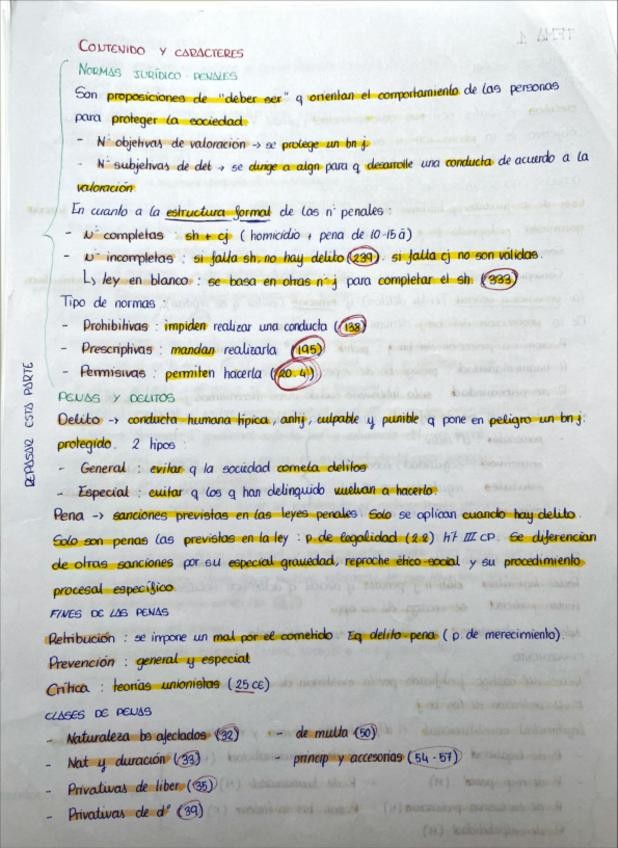 CONTENIDO Y CARACTERES
NORMAS JURÍDICO PENALES
Son proposiciones de "deber ser" q orientan el comportamiento de las personas
para proteger la sociedad.
- Nˢ objetivas de valoración → se protege un bn j
- Nˢ subjetivas de det → se dirige a algn para q desarrolle una conducta de acuerdo a la
valoración
En cuanto a la estructura formal de las nˢ penales :
- Nˢ completas : sh + cj ( homicidio + pena de 10-15 ā)
- Nˢ incompletas : si falla sh, no hay delito (239). si falla cj no son válidas.
L> ley en blanco : se basa en otras nˢ j para completar el sh (333)
Tipo de normas :
- Prohibitivas : impiden realizar una conducta (138)
- Prescriptivas : mandan realizarla (195)
- Permisivas : permiten hacerla (20.4)
REPASAR ESTA PARTE
PENAS Y DELITOS
Delito → conducta humana típica, antij, culpable y punible q pone en peligro un bn j.
protegido. 2 tipos
- General : evitar q la sociedad cometa delitos
- Especial : evitar q los q han delinquido vuelvan a hacerlo
Pena → sanciones previstas en las leyes penales. Solo se aplican cuando hay delito.
Solo son penas las previstas en la ley : p. de legalidad (2.2) III CP. Se diferencian
de otras sanciones por su especial gravedad, reproche ético-social y su procedimiento
procesal específico.
FINES DE LAS PENAS
Retribución : se impone un mal por el cometido. Eq delito-pena ( p. de merecimiento).
Prevención : general y especial
Crítica : teorías unionistas (25 CE)
CLASES DE PENAS
- Naturaleza bs afectados (32) - de multa (50)
- Nat y duración (33) - princip y accesorias (54-57)
- Privativas de liber (35)
- Privativas de dº (39)